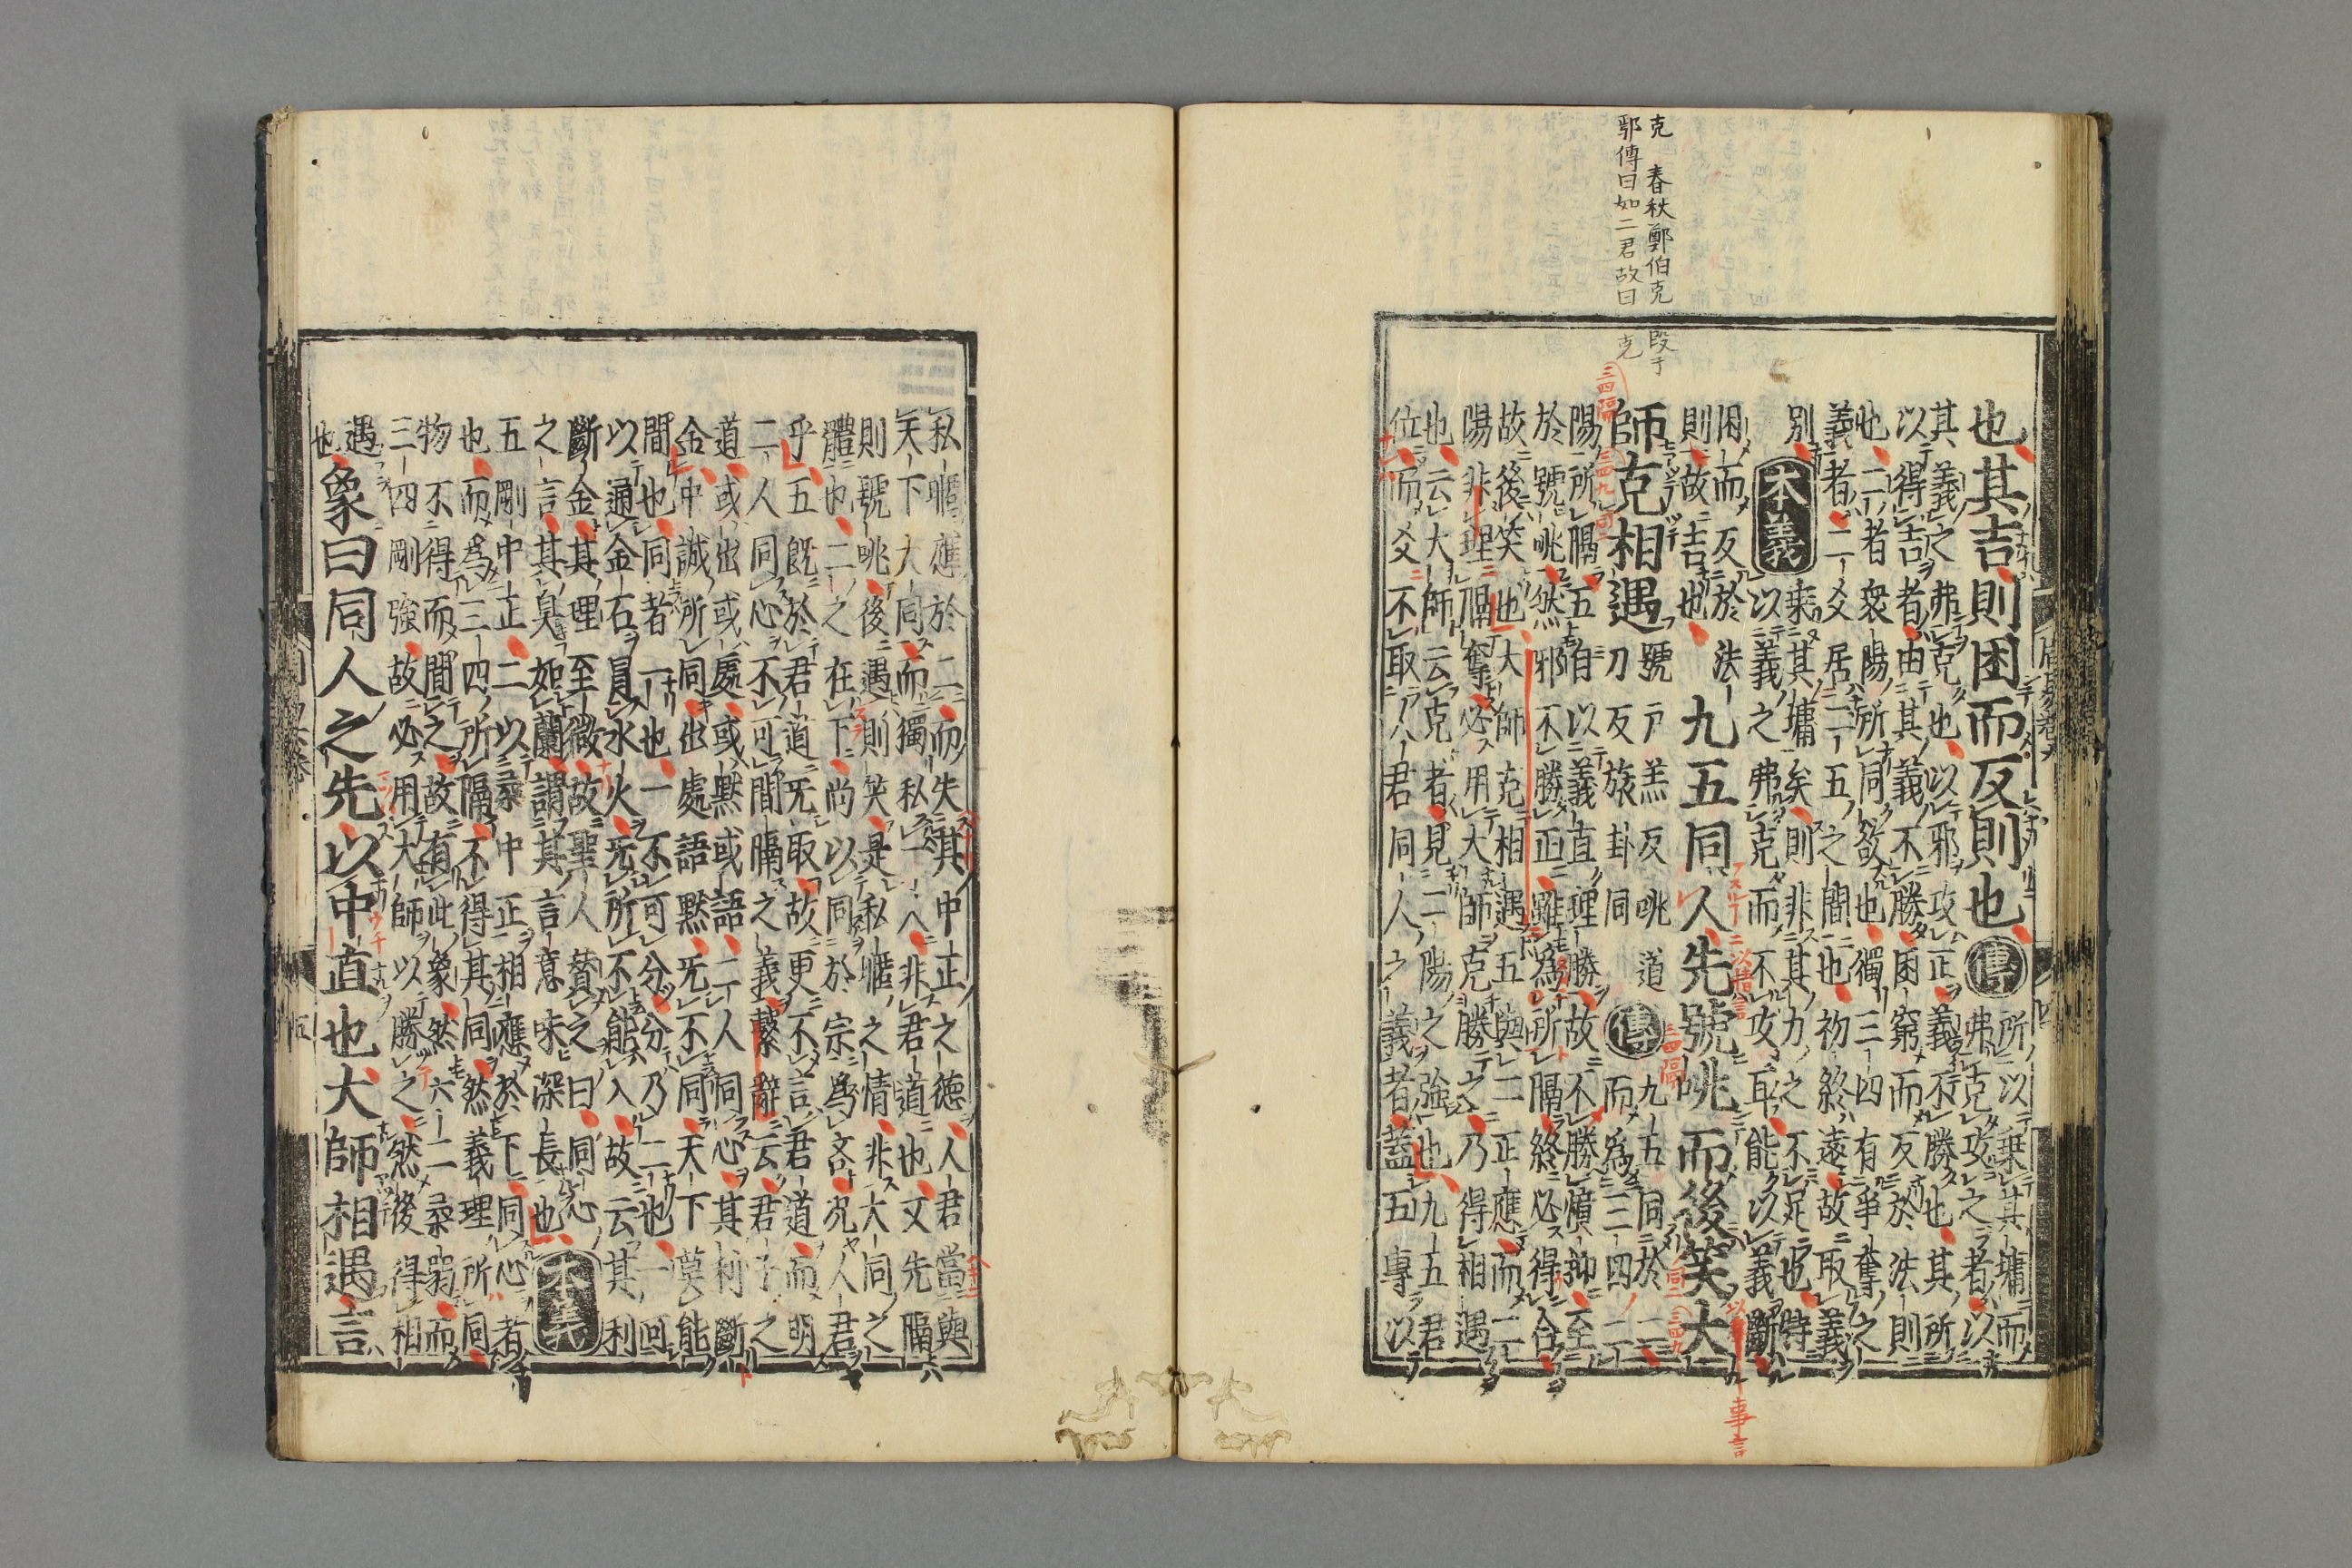 克　春秋鄭伯克段于
鄢傳曰如二君故曰克
也其吉則困而反則也傳所以乘其墉而
弗克攻之者以
其義之弗克也以邪攻正義不勝也其所
以得吉者由其義不勝困窮而反於法則
也二者衆陽所同欲也獨三四有爭奪之
義者二爻居二五之間也初終遠故取義
別本義乗其墉矣則非其力之不足也特
以義之弗克而不攻耳能以義斷
困而反於法
則故吉也九五同人先號咷而後笑大
師克相遇號戸羔反咷道
刀反旅卦同傳九五同於二
而為三四二
陽所隔五自以義直理勝故不勝憤抑至
於號咷然邪不勝正雖為所隔終必得合
故後笑也大師克相遇五與二正應而二
陽非理隔奪必用大師克勝之乃得相遇
也云大師云克者見二陽之強也九五君
位而爻不取人君同人之義者蓋五專以
私暱應於二而失其中正之德人君當與
天下大同而獨私一人非君道也又先隔
則號咷後遇則笑是私暱之情非大同之
體也二之在下尚以同於宗為吝况人君
乎五既於君道无取故更不言君道而明
二人同心不可間隔之義繫辭云君子之
道或出或處或黙或語二人同心其利斷
金中誠所同出處語黙无不同天下莫能
間也同者一也一不可分分乃二也一可
以通金石冒水火无所不能入故云其利
斷金其理至微故聖人贊之曰同心
之言其臭如蘭謂其言意味深長也本義
五剛中正二以柔中正相應於下同心者
也而為三四所隔不得其同然義理所同
物不得而間之故有此象然六二柔弱而
三四剛強故必用大師以勝之然後得相
遇
也象曰同人之先以中直也大師相遇言